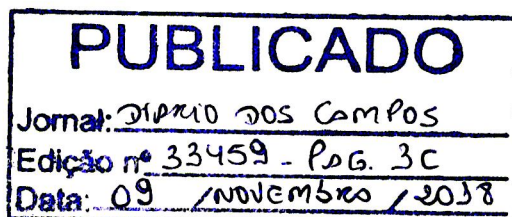 PUBLICADO
Jornal: DIARIO DOS CAMPOS
Edição nº 33459 - PAG. 3C
Data: 09 / NOVEMBRO / 2018